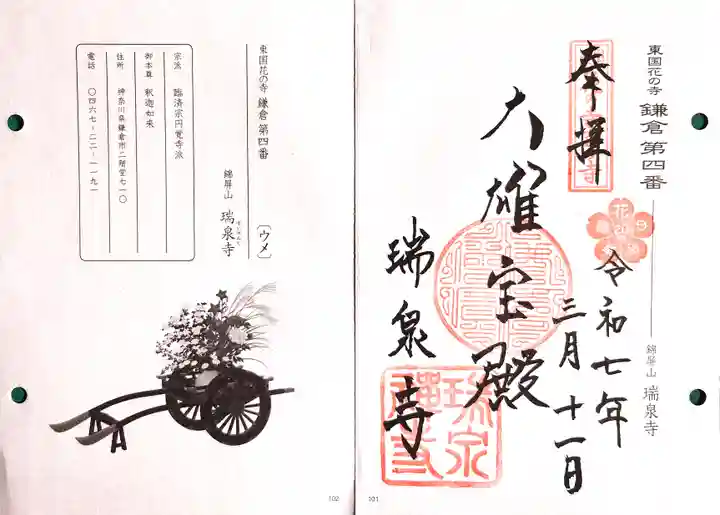 東国花の寺 鎌倉 第四番
錦屏山 瑞泉寺
奉拝
令和七年
三月十一日
大雄宝殿
瑞泉寺
101
東国花の寺 鎌倉 第四番
〔ウメ〕
錦屏山 瑞泉寺
宗派 臨済宗円覚寺派
御本尊 釈迦如来
住所 神奈川県鎌倉市二階堂七一〇
電話 〇四六七-二二-一一九一
102